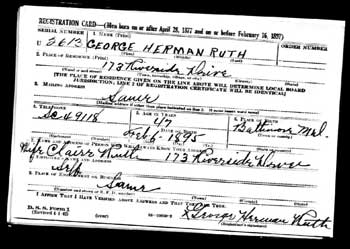 REGISTRATION CARD—(Men born on or after April 28, 1877 and on or before February 16, 1897)
SERIAL NUMBER 1. NAME (Print) ORDER NUMBER
U GEORGE HERMAN RUTH
(First) (Middle) (Last)
2. PLACE OF RESIDENCE (Print)
173 Riverside Drive
[THE PLACE OF RESIDENCE GIVEN ON THE LINE ABOVE WILL DETERMINE LOCAL BOARD
JURISDICTION; LINE 2 OF REGISTRATION CERTIFICATE WILL BE IDENTICAL]
3. MAILING ADDRESS
Same
4. TELEPHONE 5. AGE IN YEARS 6. PLACE OF BIRTH
SC 4 9118 47 Baltimore Md.
DATE OF BIRTH
Feb 6 1895
7. NAME AND ADDRESS OF
Claire Ruth 173 Riverside Drive
8. EMPLOYER'S NAME AND ADDRESS
Self
9. PLACE OF EMPLOYMENT OR BUSINESS
Same
I AFFIRM THAT I HAVE VERIFIED ABOVE ANSWERS AND THAT THEY ARE TRUE.
D. S. S. Form 1
George Herman Ruth